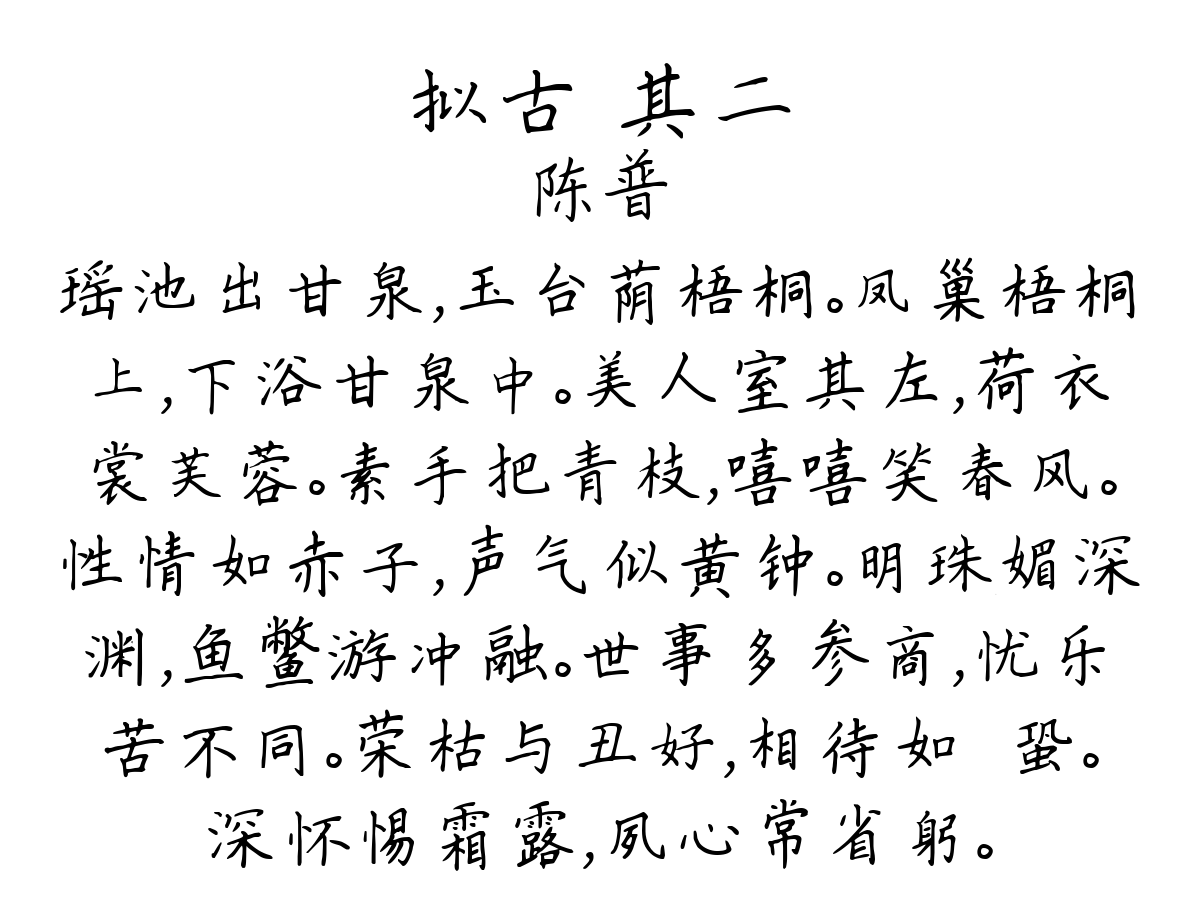 拟古 其二
陈普
瑶池出甘泉,玉台荫梧桐。凤巢梧桐
上,下浴甘泉中。美人室其左,荷衣
裳芙蓉。素手把青枝,嘻嘻笑春风。
性情如赤子,声气似黄钟。明珠媚深
渊,鱼鳖游冲融。世事多参商,忧乐
苦不同。荣枯与丑好,相待如 蛩。
深怀惕霜露,夙心常省躬。